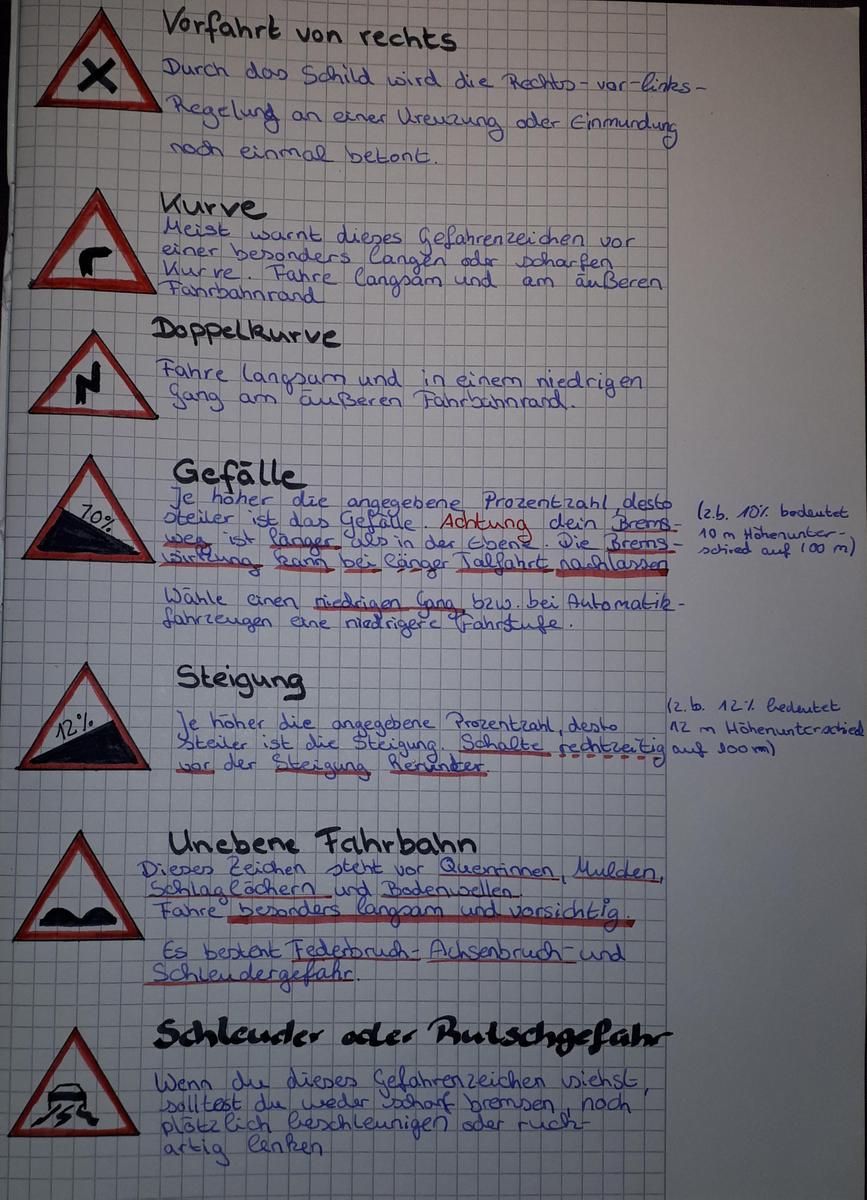 Vorfahrt von rechts
Durch das Schild wird die Rechts-vor-links-
Regelung an einer Kreuzung oder Einmundung
noch einmal betont.
Kurve
Meist warnt dieses Gefahrenzeichen vor
einer besonders langen oder scharfen
Kurve. Fahre langsam und am äußeren
Fahrbahnrand
Doppelkurve
Fahre langsam und in einem niedrigen
Gang am äußeren Fahrbahnrand.
Gefälle
10%
Je höher die angegebene Prozentzahl, desto
steiler ist das Gefälle. Achtung dein Brems-
weg ist länger als in der Ebene. Die Brems-
wirkung kann bei länger Talfahrt nachlassen
(z.b. 10% bedeutet
10 m Höhenunter-
schied auf 100 m)
Wähle einen niedrigen Gang bzw. bei Automatik-
fahrzeugen eine niedrigere Fahrstufe.
Steigung
12%
Je höher die angegebene Prozentzahl, desto
steiler ist die Steigung. Schalte rechtzeitig
vor der Steigung Runter.
(z.b. 12% bedeutet
12 m Höhenunterschied
auf 100m)
Unebene Fahrbahn
Dieses Zeichen steht vor Querrinnen, Mulden,
Schlaglöchern und Bodenwellen
Fahre besonders langsam und vorsichtig.
Es besteht Federbruch- Achsenbruch- und
Schleudergefahr.
Schleuder oder Rutschgefahr
Wenn du dieses Gefahrenzeichen siehst,
solltest du weder scharf bremsen, noch
plötzlich beschleunigen oder ruck-
artig lenken